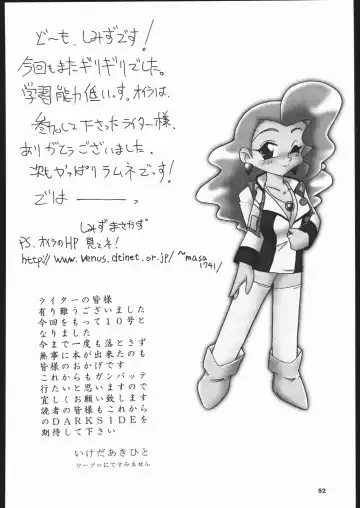 ど〜も、しみずです!
今回もまたギリギリでした。
学習能力低いっす。オイラは、
参加して下さったライター様、
ありがとうございました。
次もやっぱりラムネです!
では———っ。
しみずまさかず
PS. オイラのHP 見てネ!
http://www.venus.dtinet.or.jp/~masa
1741/
ライターの皆様
有り難うございました
今回をもって10号と
なりました
今まで一度も落とさず
無事に本が出来たのも
皆様のおかげです
これからもガンバッテ
行たいと思いますので
宜しくお願い致します
読者の皆様もこれから
のDARKSIDEを
期待して下さい
いけだあきひと
ワープロにてすみません
52